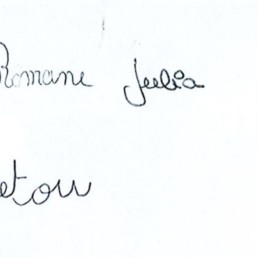 Romane Julia
etou